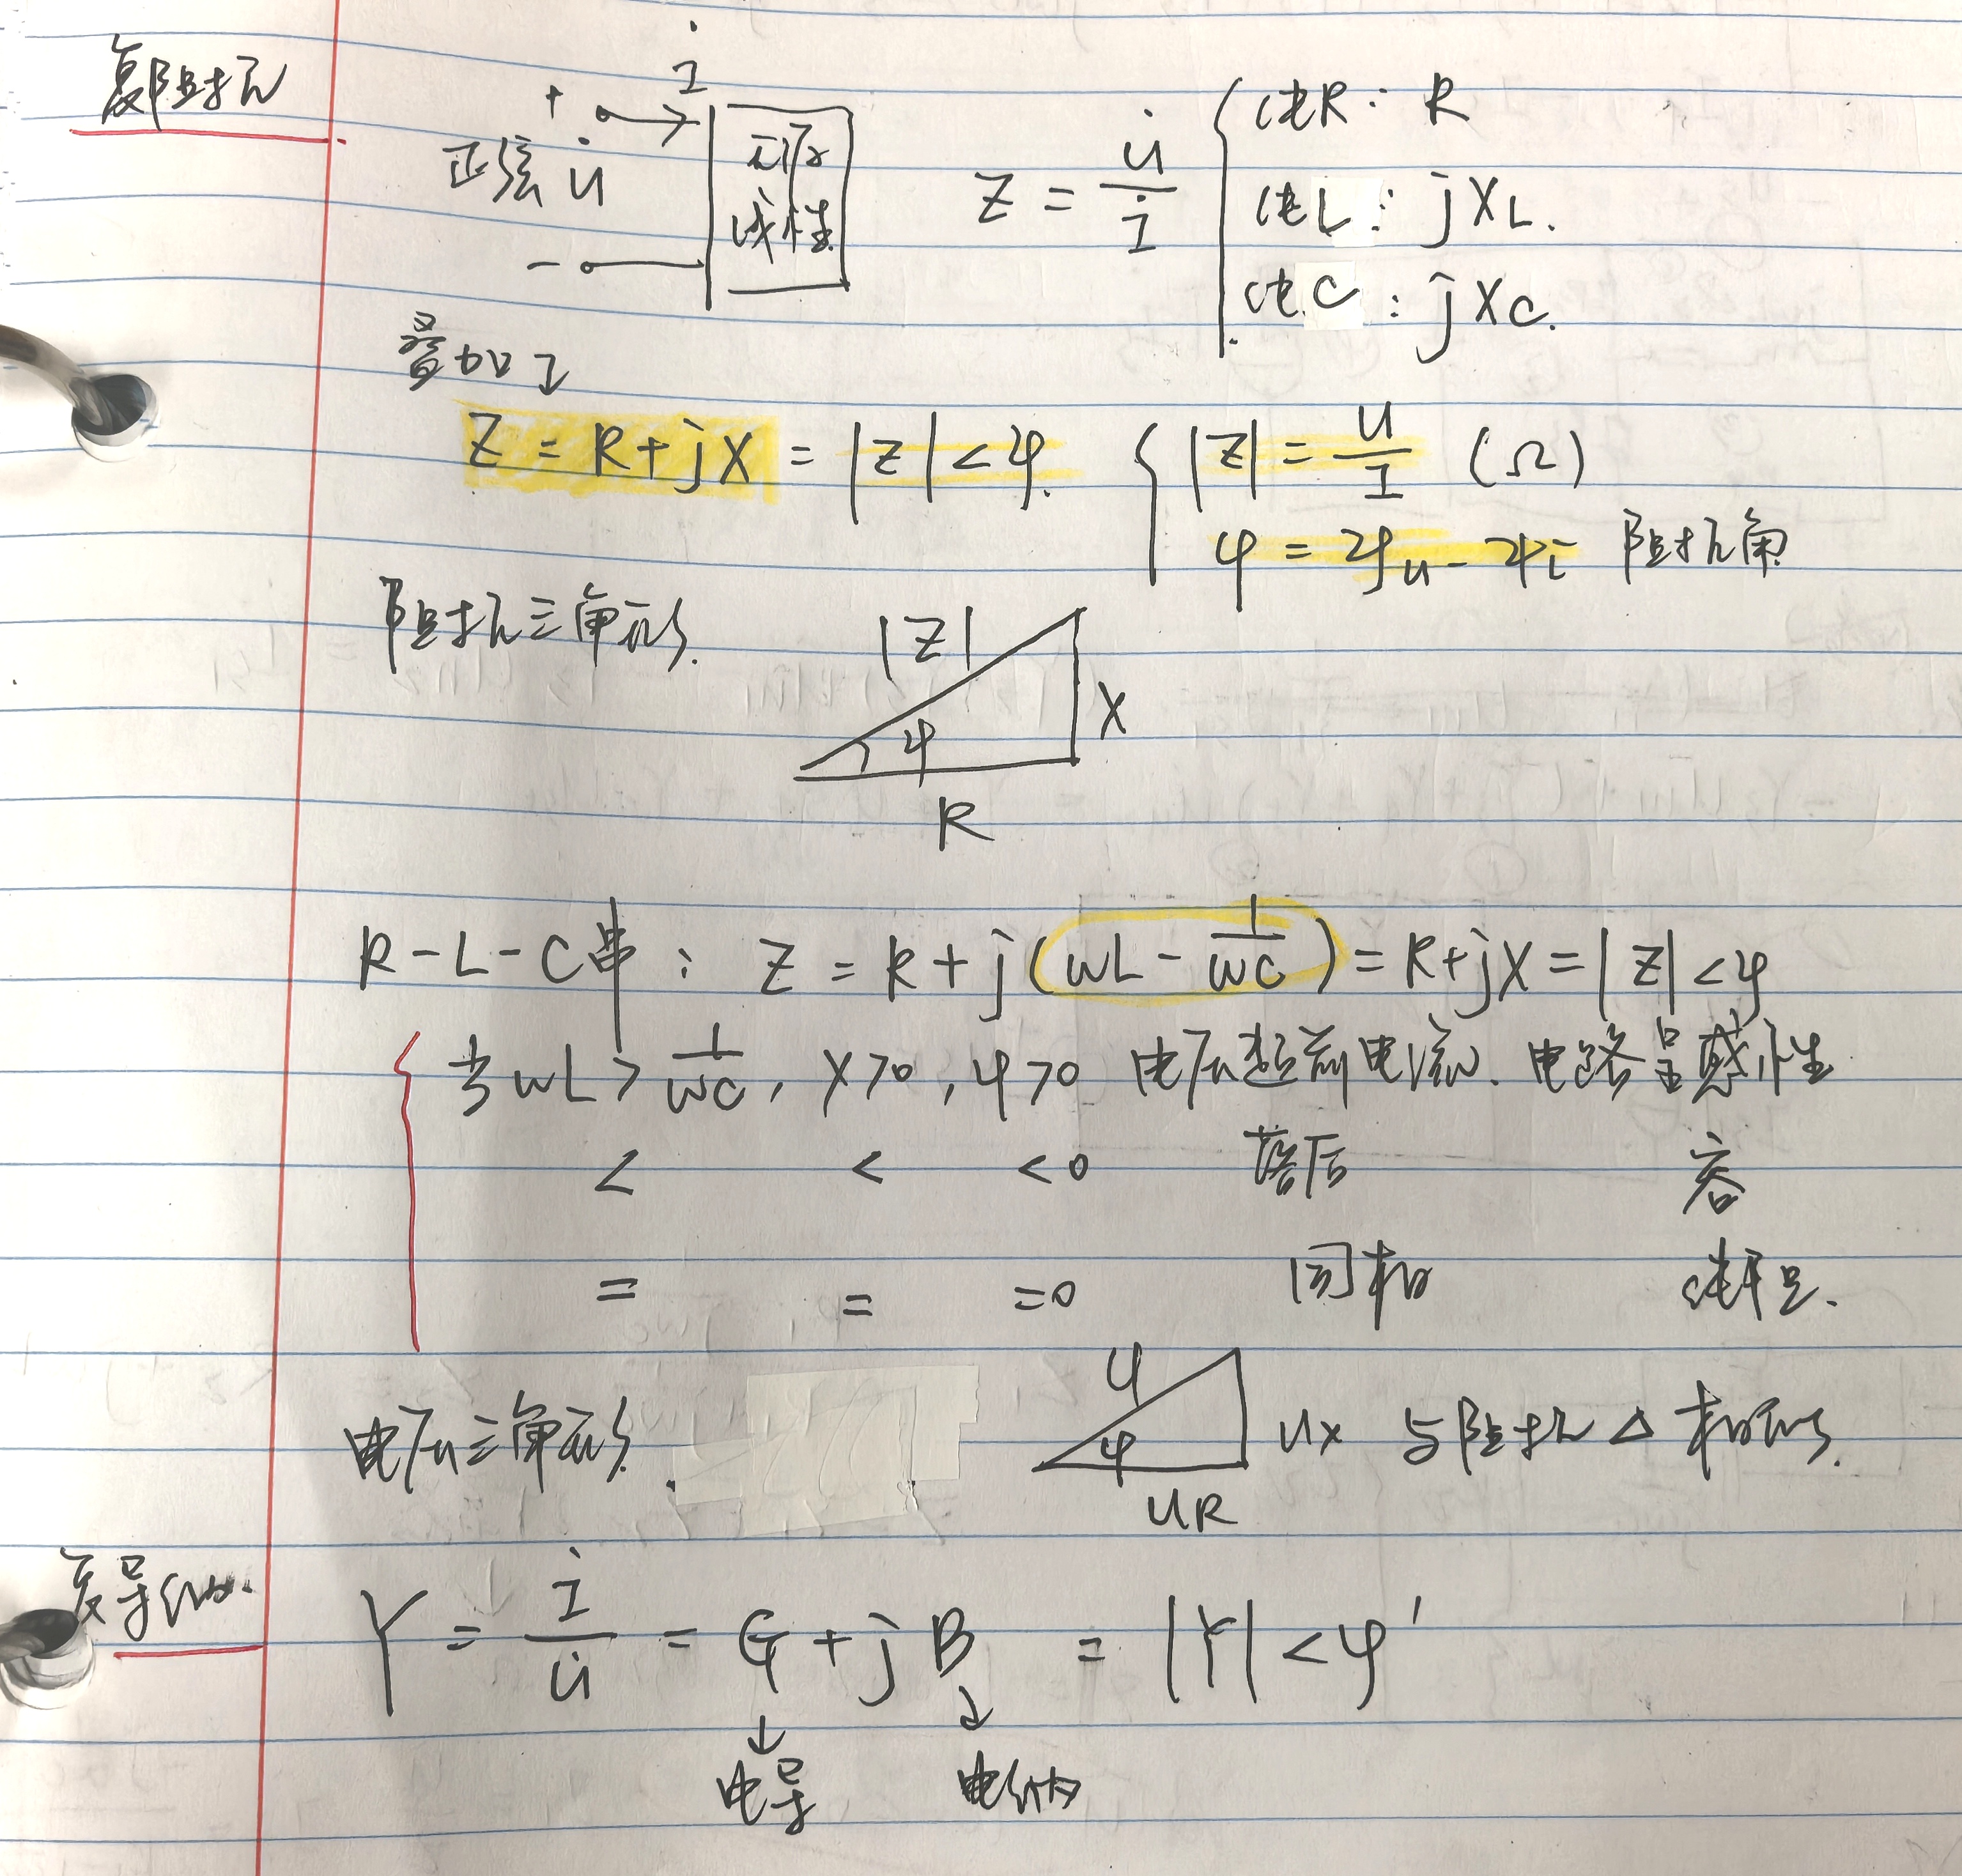 复阻抗
İ
+
正弦 u̇
-
无源
线性
Z = u̇/İ { 纯R: R
纯L: jXL.
纯C: jXC.
叠加了
Z = R+jX = |Z|<φ. { |Z| = U/I (Ω)
φ = ψu - ψi 阻抗角
阻抗三角形.
|Z|
X
φ
R
R-L-C串: Z = R + j(wL - 1/wC) = R+jX = |Z|<φ
当 wL > 1/wC, X>0, φ>0 电压超前电流. 电路呈感性
< < <0 落后 容
= = =0 同相 纯阻.
电压三角形.
U
φ
Ux 与阻抗△相似.
UR
复导纳.
Y = İ/u̇ = G + jB = |Y|<φ'
↓ ↓
电导 电纳